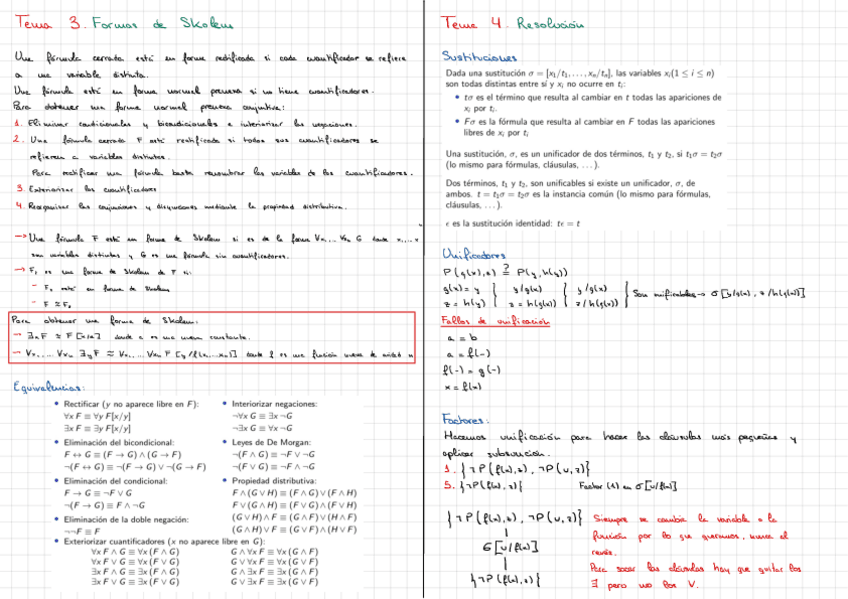 Tema 3. Formas de Skolem
Una fórmula cerrada está en forma rectificada si cada cuantificador se refiere
a una variable distinta.
Una fórmula está en forma normal prenexa si no tiene cuantificadores.
Para obtener una forma normal prenexa conjuntiva:
1. Eliminar condicionales y bicondicionales e interiorizar las negaciones.
2. Una fórmula cerrada F está rectificada si todos sus cuantificadores se
refieren a variables distintas.
Para rectificar una fórmula basta renombrar las variables de los cuantificadores.
3. Exteriorizar los cuantificadores
4. Reorganizar las conjunciones y disyunciones mediante la propiedad distributiva.
→ Una fórmula F está en forma de Skolem si es de la forma ∀x₁... ∀xₙ G donde x₁...
son variables distintas y G es una fórmula sin cuantificadores.
→ F₁ es una forma de Skolem de F si:
- F₁ está en forma de Skolem
- F ≈ F₁
Para obtener una forma de Skolem:
→ ∃x F ≈ F[x/a] donde a es una nueva constante.
→ ∀x₁... ∀xₙ ∃y F ≈ ∀x₁... ∀xₙ F [y/f(x₁...xₙ)] donde f es una función nueva de aridad n
Equivalencias:
• Rectificar (y no aparece libre en F):
∀x F ≡ ∀y F[x/y]
∃x F ≡ ∃y F[x/y]
• Eliminación del bicondicional:
F ↔ G ≡ (F → G) ∧ (G → F)
¬(F ↔ G) ≡ ¬(F → G) ∨ ¬(G → F)
• Eliminación del condicional:
F → G ≡ ¬F ∨ G
¬(F → G) ≡ F ∧ ¬G
• Eliminación de la doble negación:
¬¬F ≡ F
• Interiorizar negaciones:
¬∀x G ≡ ∃x ¬G
¬∃x G ≡ ∀x ¬G
• Leyes de De Morgan:
¬(F ∧ G) ≡ ¬F ∨ ¬G
¬(F ∨ G) ≡ ¬F ∧ ¬G
• Propiedad distributiva:
F ∧ (G ∨ H) ≡ (F ∧ G) ∨ (F ∧ H)
F ∨ (G ∧ H) ≡ (F ∨ G) ∧ (F ∨ H)
(G ∨ H) ∧ F ≡ (G ∧ F) ∨ (H ∧ F)
(G ∧ H) ∨ F ≡ (G ∨ F) ∧ (H ∨ F)
• Exteriorizar cuantificadores (x no aparece libre en G):
∀x F ∧ G ≡ ∀x (F ∧ G) G ∧ ∀x F ≡ ∀x (G ∧ F)
∀x F ∨ G ≡ ∀x (F ∨ G) G ∨ ∀x F ≡ ∀x (G ∨ F)
∃x F ∧ G ≡ ∃x (F ∧ G) G ∧ ∃x F ≡ ∃x (G ∧ F)
∃x F ∨ G ≡ ∃x (F ∨ G) G ∨ ∃x F ≡ ∃x (G ∨ F)
Tema 4. Resolución
Sustituciones
Dada una sustitución σ = [x₁/t₁, . . . , xₙ/tₙ], las variables xᵢ(1 ≤ i ≤ n)
son todas distintas entre sí y xᵢ no ocurre en tᵢ:
• tσ es el término que resulta al cambiar en t todas las apariciones de
xᵢ por tᵢ.
• Fσ es la fórmula que resulta al cambiar en F todas las apariciones
libres de xᵢ por tᵢ
Una sustitución, σ, es un unificador de dos términos, t₁ y t₂, si t₁σ = t₂σ
(lo mismo para fórmulas, cláusulas, . . . ).
Dos términos, t₁ y t₂, son unificables si existe un unificador, σ, de
ambos. t = t₁σ = t₂σ es la instancia común (lo mismo para fórmulas,
cláusulas, . . . ).
ϵ es la sustitución identidad: tϵ = t
Unificadores
P(g(x),z) ≟ P(y,h(y))
g(x) = y } y/g(x) } y/g(x) } Son unificables → σ [y/g(x), z/h(g(x))]
z = h(y) } z = h(g(x)) } z/h(g(x)) }
Fallos de unificación
a = b
a = f(-)
f(-) = g(-)
x = f(x)
Factores:
Hacemos unificación para hacer las cláusulas más pequeñas y
aplicar subsunción.
1. {¬P(f(a),z), ¬P(u,z)}
5. {¬P(f(a),z)} Factor (1) en σ[u/f(a)]
{¬P(f(a),z), ¬P(u,z)}
σ[u/f(a)]
{¬P(f(a),z)}
Siempre se cambia la variable a la
función por lo que queramos, nunca al
revés.
Para sacar las cláusulas hay que quitar los
∃ pero no los ∀.